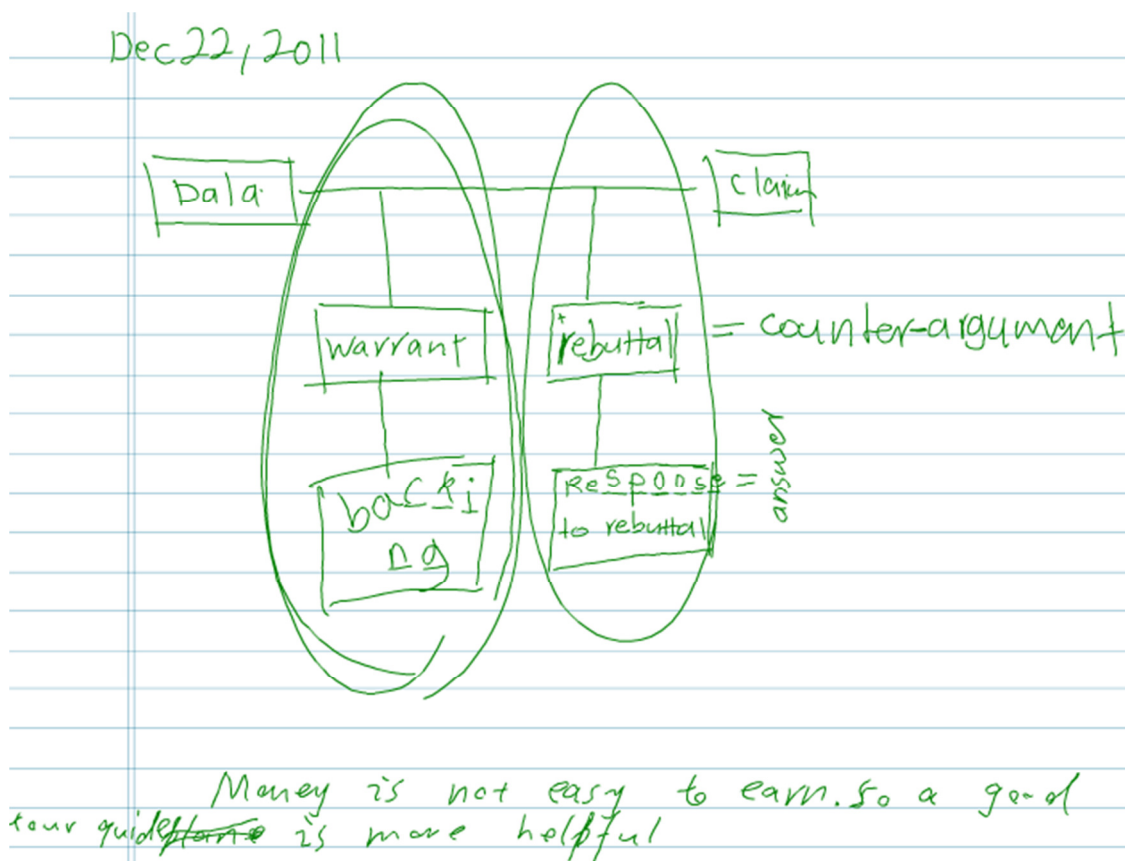 Dec 22, 2011
Data
Claim
warrant
rebuttal
= counter-argument
backi
ng
Response
to rebuttal
= answer
Money is not easy to earn. So a good
tour guide is more helpful